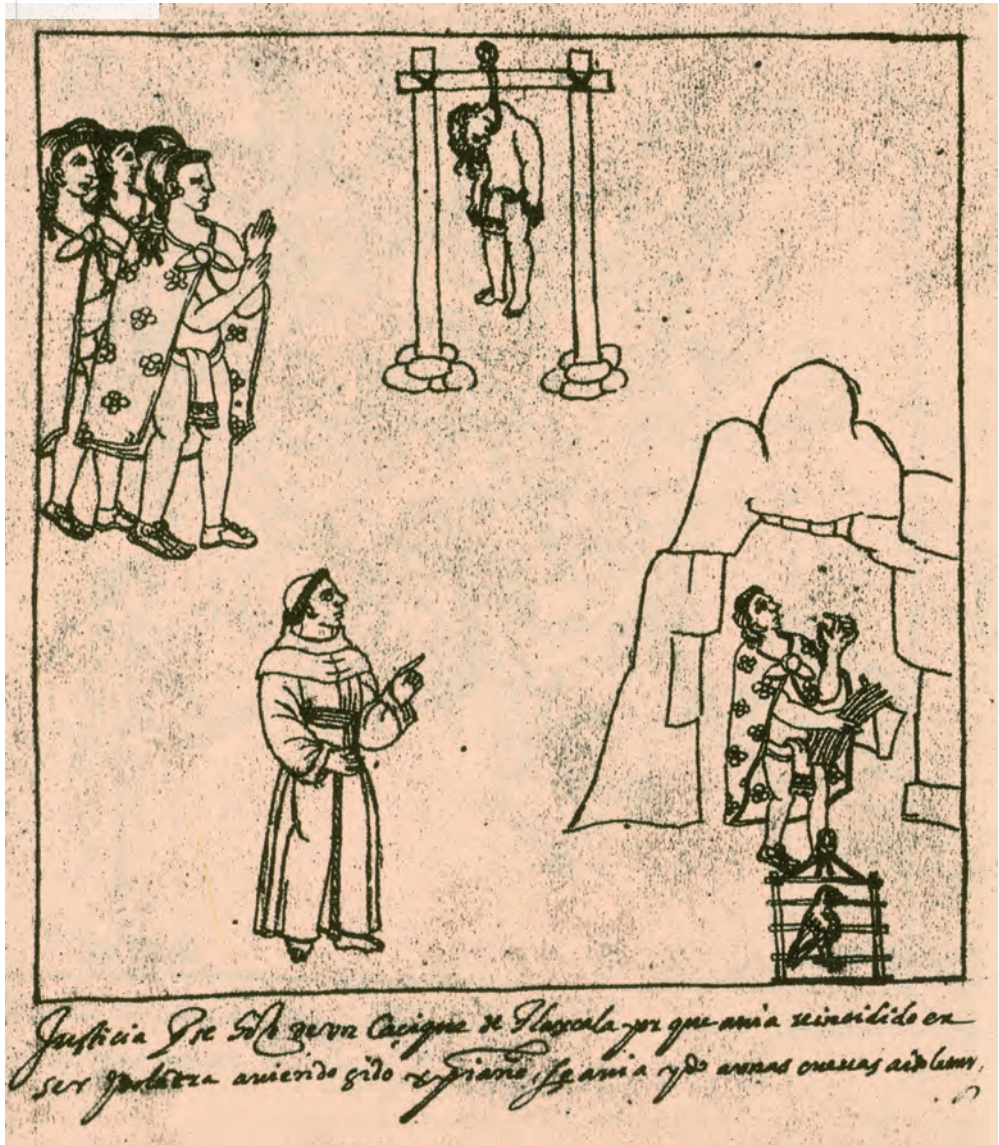 Justicia q̃ se hizo de vn Caçique de Tlaxcala por que auia reinsidido en
ser ydolatra auiendo sido xp̃iano, se auia ydo a vnas cueuas a idolatrar.